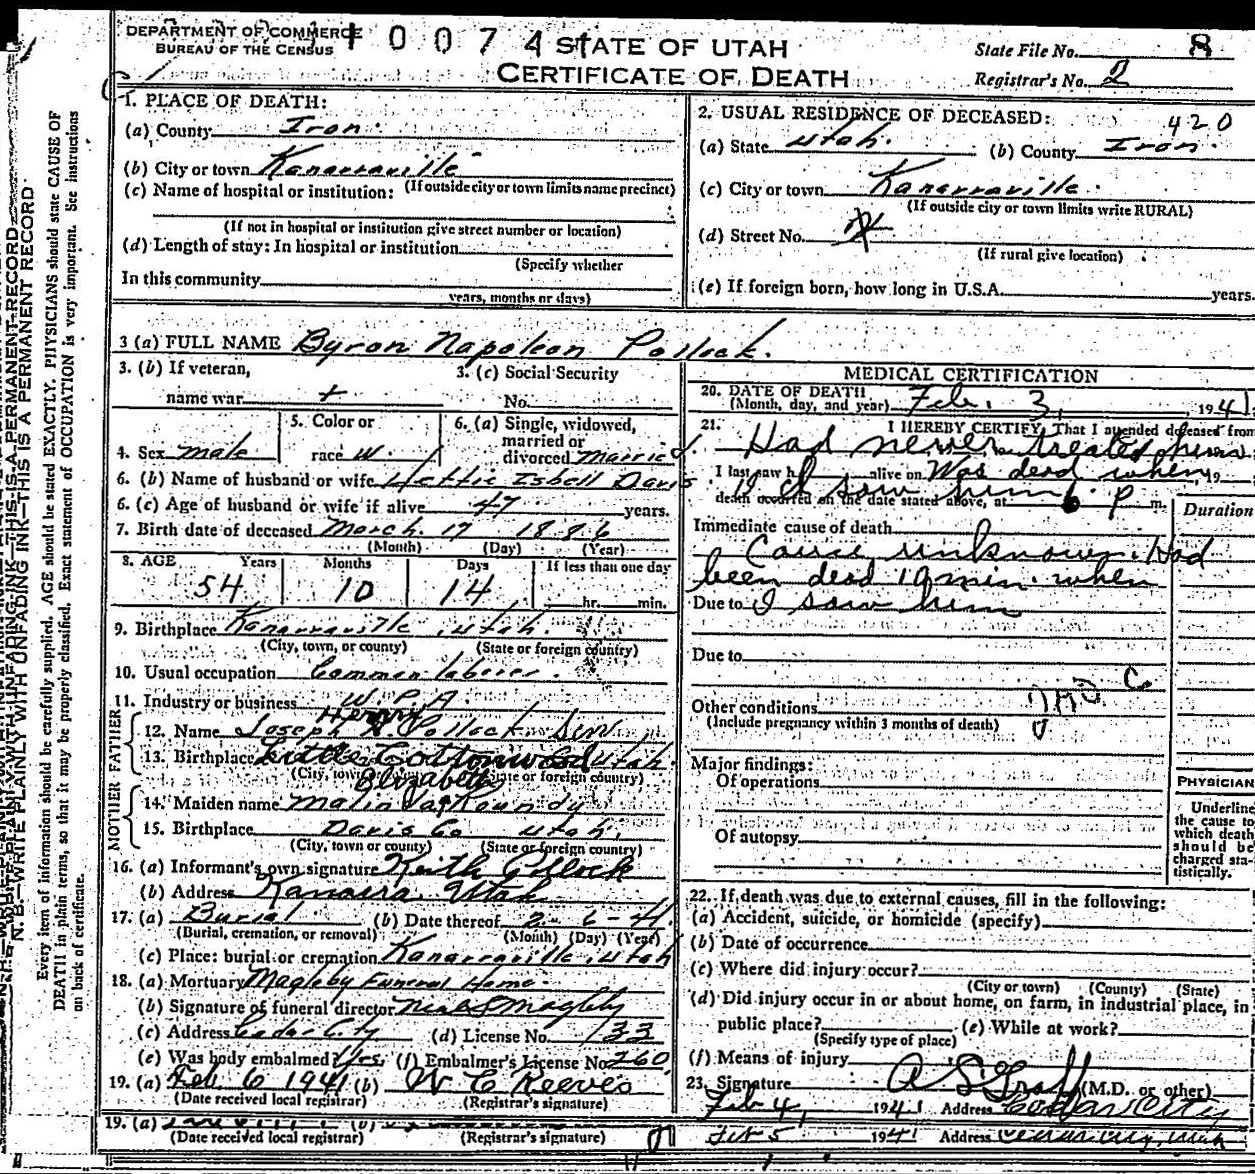 DEPARTMENT OF COMMERCE
BUREAU OF THE CENSUS
0 0 7 4
STATE OF UTAH
CERTIFICATE OF DEATH
State File No. 8
Registrar's No. 2
1. PLACE OF DEATH:
(a) County Iron.
(b) City or town Kanarraville
(c) Name of hospital or institution: (If outside city or town limits name precinct)
(If not in hospital or institution give street number or location)
(d) Length of stay: In hospital or institution
(Specify whether
In this community
years, months or days)
2. USUAL RESIDENCE OF DECEASED:
420
(a) State Utah. (b) County Iron.
(c) City or town Kanarraville.
(If outside city or town limits write RURAL)
(d) Street No.
(If rural give location)
(e) If foreign born, how long in U.S.A. years.
3 (a) FULL NAME Byron Napoleon Pollock.
3. (b) If veteran,
name war +
3. (c) Social Security
No.
4. Sex male
5. Color or
race W.
6. (a) Single, widowed,
married or
divorced Married.
6. (b) Name of husband or wife Hettie Isbell Davis
6. (c) Age of husband or wife if alive 47 years.
7. Birth date of deceased March 17 1886
(Month) (Day) (Year)
8. AGE Years Months Days If less than one day
54 10 14 hr. min.
9. Birthplace Kanarraville, Utah.
(City, town, or county) (State or foreign country)
10. Usual occupation Common laborer.
11. Industry or business W.P.A.
Henry
12. Name Joseph H. Pollock
13. Birthplace Little Cottonwood Utah.
(City, town State or foreign country)
Elizabeth
14. Maiden name Roundy
15. Birthplace Davis Co Utah.
(City, town or county) (State or foreign country)
FATHER
MOTHER
16. (a) Informant's own signature Keith Pollock
(b) Address Kanarra, Utah
17. (a) Burial (b) Date thereof 2-6-41
(Burial, cremation, or removal) (Month) (Day) (Year)
(c) Place: burial or cremation Kanarraville, Utah
18. (a) Mortuary Magleby Funeral Home.
(b) Signature of funeral director Magleby
(c) Address Cedar City (d) License No. 133
(e) Was body embalmed? Yes. (f) Embalmer's License No. 260
19. (a) Feb 6 1941 (b) W C Reeves
(Date received local registrar) (Registrar's signature)
19. (a) (b)
(Date received local registrar) (Registrar's signature)
MEDICAL CERTIFICATION
20. DATE OF DEATH
(Month, day, and year) Feb. 3, 1941.
21. I HEREBY CERTIFY, That I attended deceased from
Had never treated him.
I last saw h alive on Was dead when, 19
I saw him
death occurred on the date stated above, at 6 P m.
Duration
Immediate cause of death
Cause unknown. Had
been dead 10 min. when
Due to I saw him
Due to
Other conditions
(Include pregnancy within 3 months of death)
Major findings:
Of operations
Of autopsy
PHYSICIAN
Underline
the cause to
which death
should be
charged sta-
tistically.
22. If death was due to external causes, fill in the following:
(a) Accident, suicide, or homicide (specify)
(b) Date of occurrence
(c) Where did injury occur?
(City or town) (County) (State)
(d) Did injury occur in or about home, on farm, in industrial place, in
public place? (e) While at work?
(Specify type of place)
(f) Means of injury
23. Signature A S Graff (M.D. or other)
Feb 4, 1941 Address Cedar City
Feb 5 1941 Address Cedar City, Utah
N. B.—WRITE PLAINLY WITH UNFADING INK—THIS IS A PERMANENT RECORD.
Every item of information should be carefully supplied. AGE should be stated EXACTLY. PHYSICIANS should state CAUSE OF
DEATH in plain terms, so that it may be properly classified. Exact statement of OCCUPATION is very important. See instructions
on back of certificate.